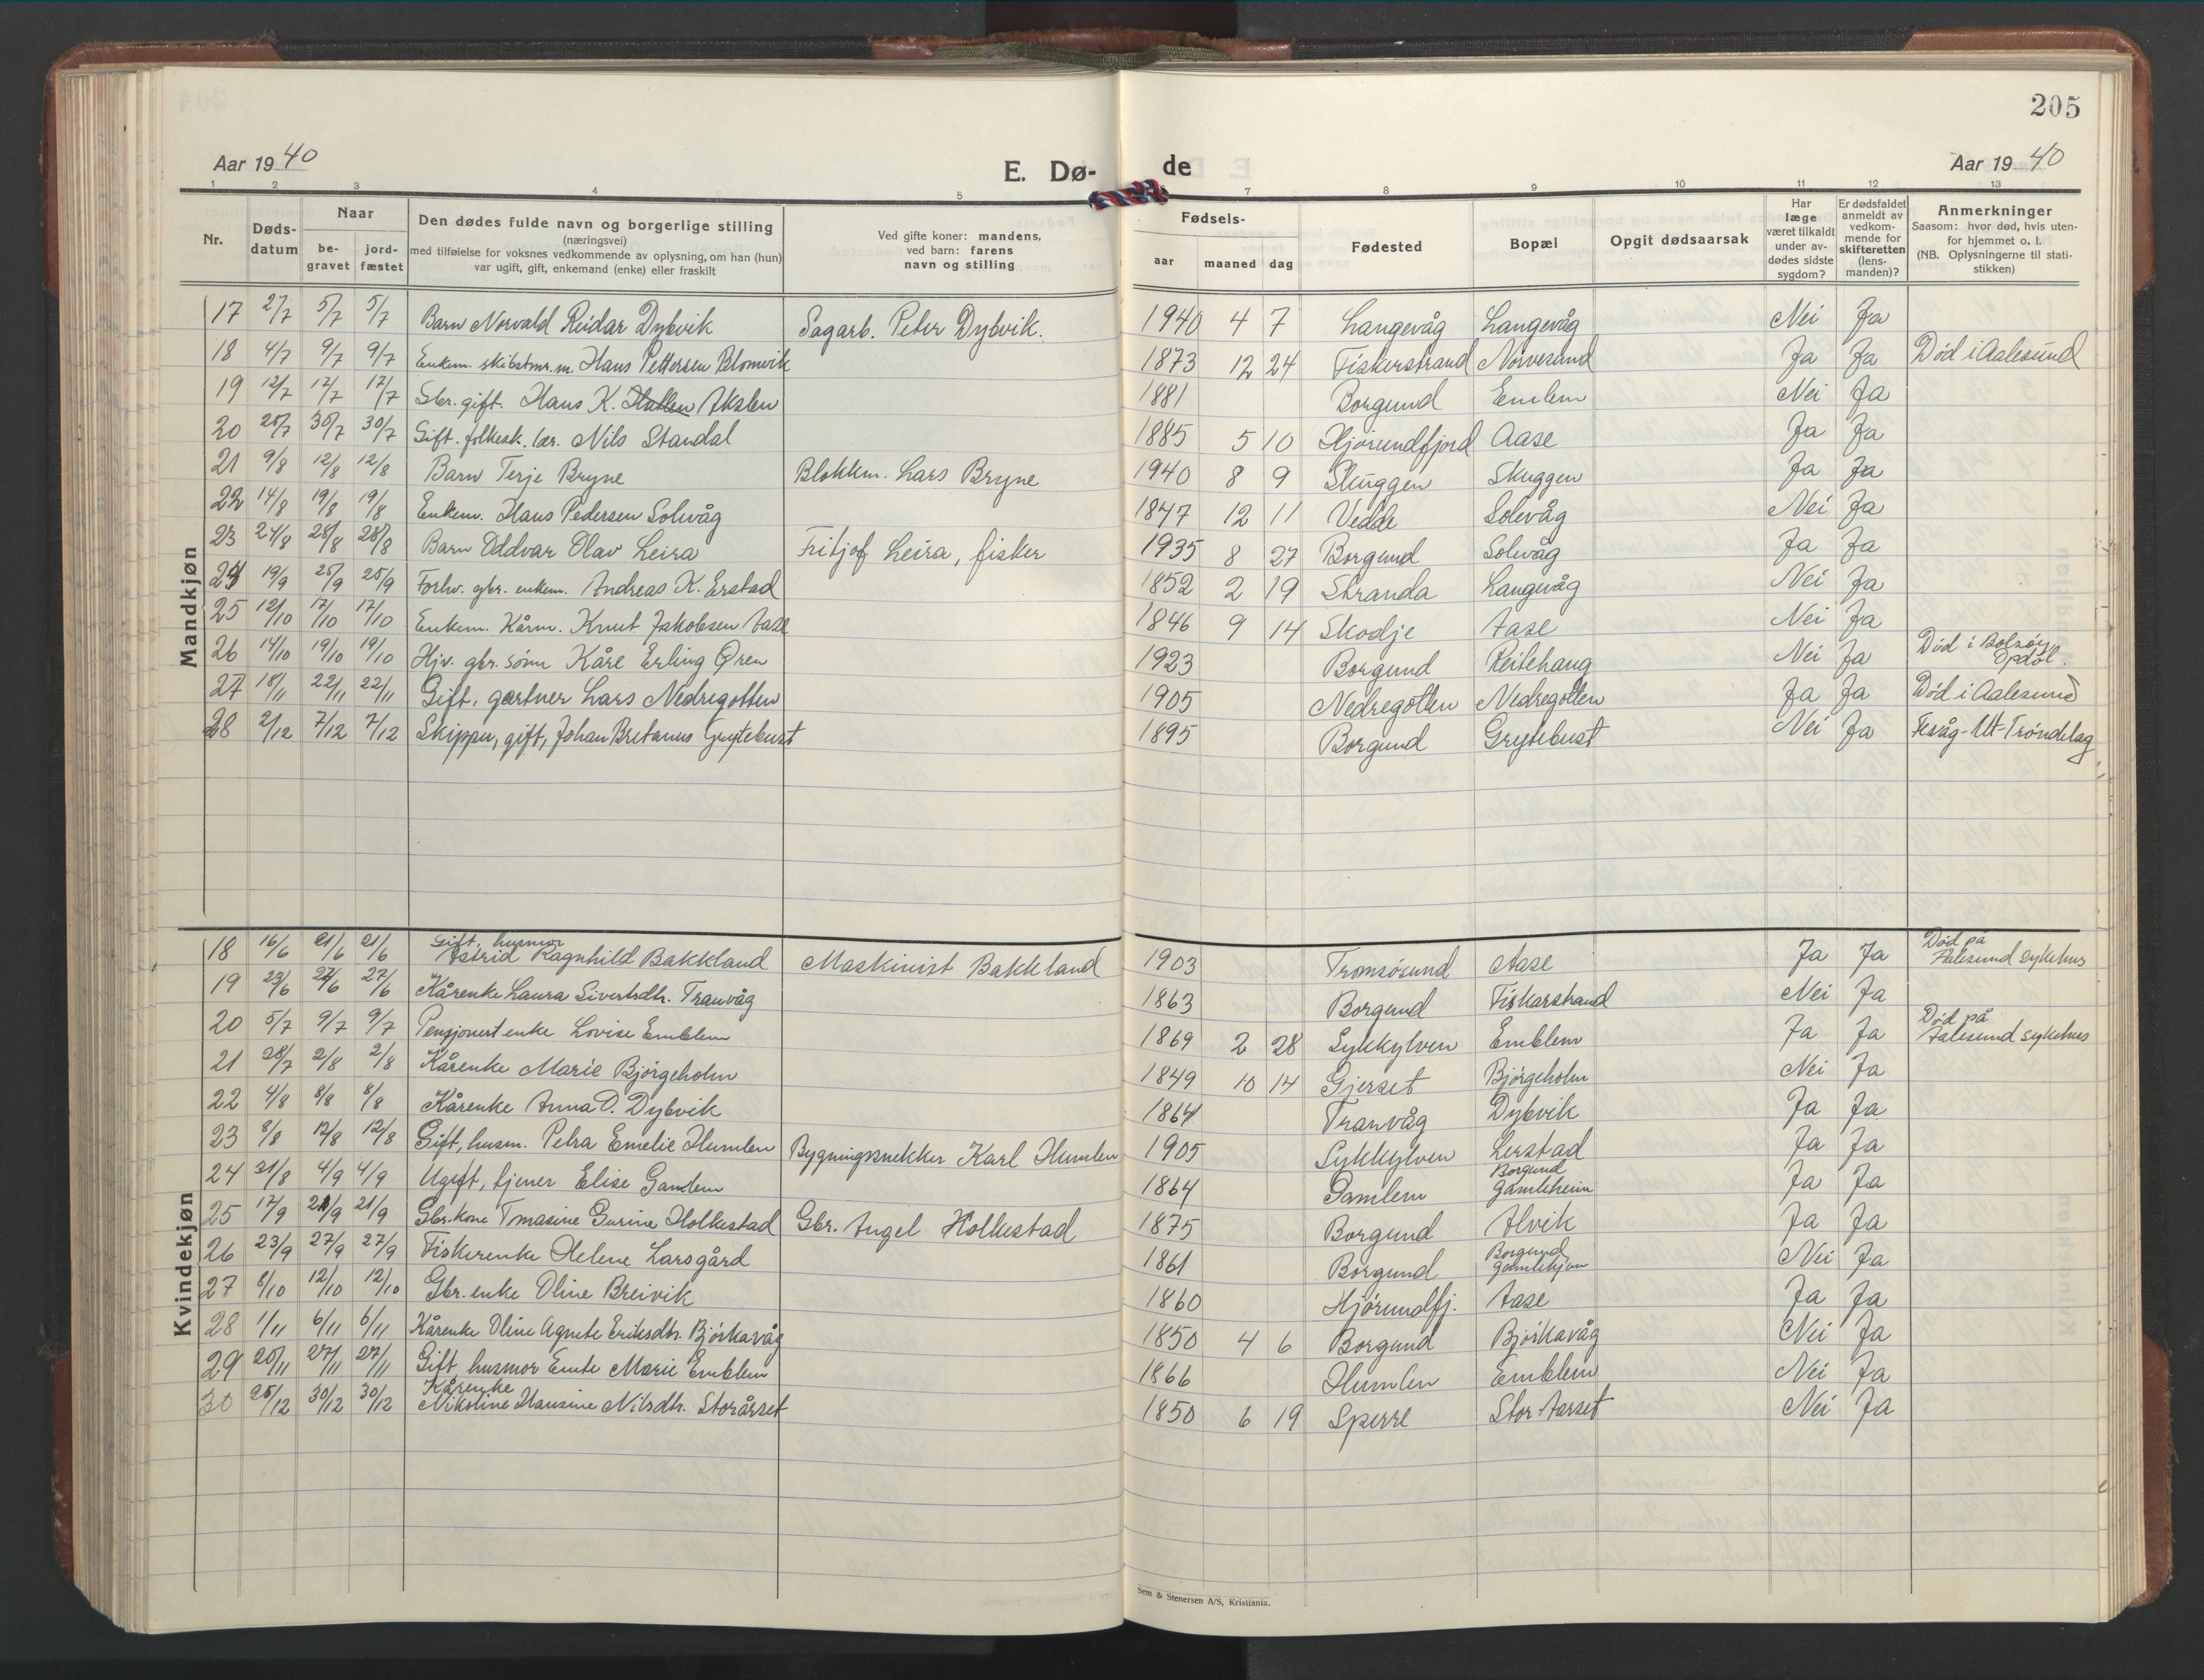 205
Aar 1940
E. Dø-
de
Aar 1940
1 2 3 4 5 7 8 9 10 11 12 13
Nr.
Døds-
datum
Naar
be-
gravet
jord-
fæstet
Den dødes fulde navn og borgerlige stilling
(næringsvei)
med tilføielse for voksnes vedkommende av oplysning, om han (hun)
var ugift, gift, enkemand (enke) eller fraskilt
Ved gifte koner: mandens,
ved barn: farens
navn og stilling
Fødsels-
aar
maaned
dag
Fødested
Bopæl
Opgit dødsaarsak
Har
læge
været tilkaldt
under av-
dødes sidste
sygdom?
Er dødsfaldet
anmeldt av
vedkom-
mende for
skifteretten
(lens-
manden)?
Anmerkninger
Saasom: hvor død, hvis uten-
for hjemmet o. l.
(NB. Oplysningerne til stati-
stikken)
Mandkjøn
17 2/7 5/7 5/7 Barn Norvald Reidar Dybvik Sagarb. Peter Dybvik. 1940 4 7 Langevåg Langevåg Nei Ja
18 4/7 9/7 9/7 Enkem. skibstmr.m. Hans Pettersen Blomvik 1873 12 24 Fiskerstrand Nørvesund Ja Ja Død i Aalesund
19 12/7 17/7 17/7 Gbr. gift. Hans K. Hatlen Akslen 1881 Borgund Emlem Nei Ja
20 25/7 30/7 30/7 Gift. folkesk. lær. Nils Standal 1885 5 10 Hjørundfjord Aase Ja Ja
21 9/8 12/8 12/8 Barn Terje Bryne Blokkm. Lars Bryne 1940 8 9 Skuggen Skuggen Ja Ja
22 14/8 19/8 19/8 Enkem. Hans Pedersen Solevåg 1847 12 11 Vedde Solevåg Nei Ja
23 24/8 28/8 28/8 Barn Oddvar Olav Leira Fritjof Leira, fisker 1935 8 27 Borgund Solevåg Ja Ja
24 19/9 25/9 25/9 Forhv. gbr. enkem. Andreas K. Erstad 1852 2 19 Stranda Langevåg Nei Ja
25 12/10 17/10 17/10 Enkem. Kårm. Knut Jakobsen Aase 1846 9 14 Skodje Aase Nei Ja
26 14/10 19/10 19/10 Hjv. gbr. sønn Kåre Erling Øren 1923 Borgund Reitehaug Nei Ja Død i Bolsøy
Opdøl.
27 18/11 22/11 22/11 Gift, gartner Lars Nedregotten 1905 Nedregotten Nedregotten Ja Ja Død i Aalesund
28 2/12 7/12 7/12 Skipper, gift, Johan Bretanus Grytebust 1895 Borgund Grytebust Nei Ja Tervåg-Utt-Trøndelag
Kvindekjøn
Gift, husmor
18 16/6 21/6 21/6 Astrid Ragnhild Bakkland Maskinist Bakkland 1903 Tromsøsund Aase Ja Ja Død på
Aalesund sykehus
19 23/6 27/6 27/6 Kårenke Laura Sivertsdtr. Tranvåg 1863 Borgund Fiskarstrand Nei Ja
20 5/7 9/7 9/7 Pensjonert enke Lovise Emblem 1869 2 28 Sykkylven Emblem Ja Ja Død på
Aalesund sykehus
21 28/7 2/8 2/8 Kårenke Marie Bjørgeholm 1849 10 14 Gjerset Bjørgeholm Nei Ja
22 4/8 8/8 8/8 Kårenke Anna O. Dybvik 1864 Tranvåg Dybvik Ja Ja
23 8/8 12/8 12/8 Gift, husm. Petra Emelie Humlen Bygningssnekker Karl Humlen 1905 Sykkylven Lerstad Ja Ja
24 31/8 4/9 4/9 Ugift, tjener Elise Gamlem 1864 Gamlem Borgund
Gamleheim Ja Ja
25 17/9 21/9 21/9 Gbr.kone Tomasine Gurine Holkestad Gbr. Angel Holkestad 1875 Borgund Alvik Ja Ja
26 23/9 27/9 27/9 Fiskerenke Helene Larsgård 1861 Borgund Borgund
Gamlehjem Nei Ja
27 8/10 12/10 12/10 Gbr. enke Oline Breivik 1860 Hjørundfj. Aase Ja Ja
28 1/11 6/11 6/11 Kårenke Oline Agnete Eriksdtr. Bjørkavåg 1850 4 6 Borgund Bjørkavåg Nei Ja
29 20/11 27/11 27/11 Gift husmor Emte Marie Emblem 1866 Humlen Emblem Nei Ja
Kårenke
30 25/12 30/12 30/12 Nikoline Hansine Nilsdtr. Storårset 1850 6 19 Sperre Stor-Aarset Nei Ja
Sem & Stenersen A/S, Kristiania.